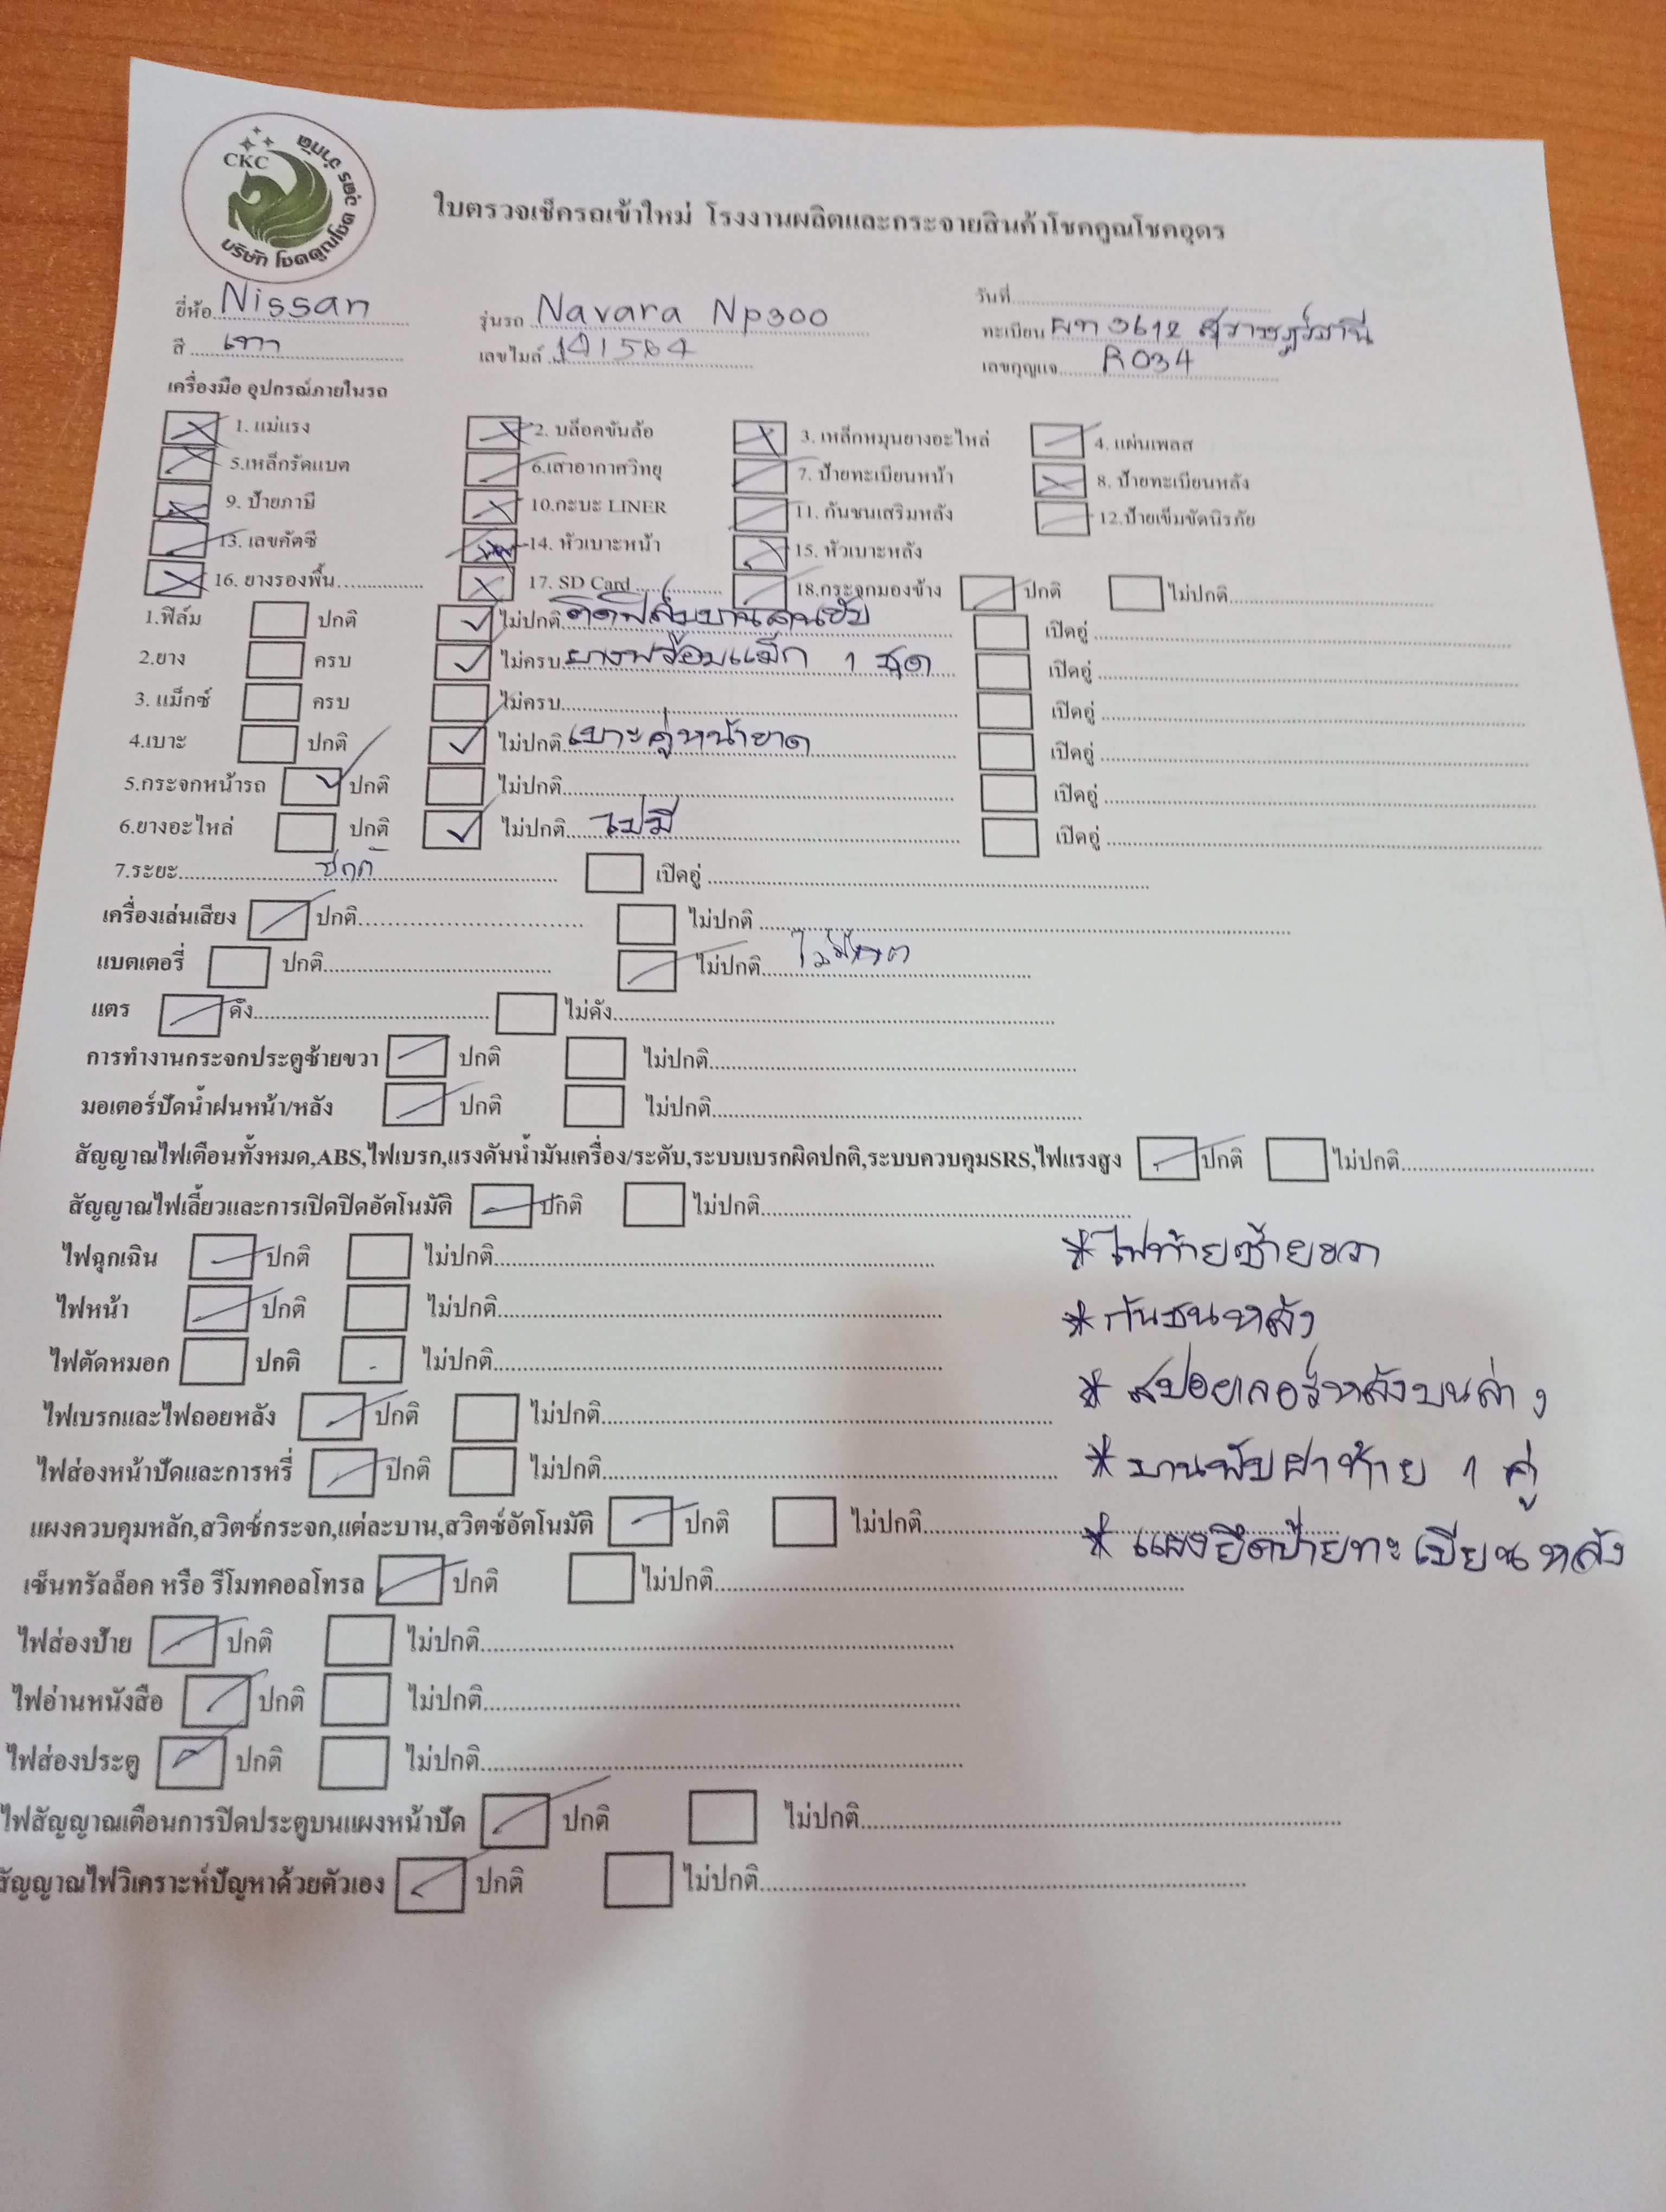 CKC
บริษัท โชคคูณโชค อุดร จำกัด
ใบตรวจเช็ครถเข้าใหม่ โรงงานผลิตและกระจายสินค้าโชคคูณโชคอุดร
วันที่
ยี่ห้อ Nissan รุ่นรถ Navara Np300 ทะเบียน ผท 3612 สุราษฎร์ธานี
สี เทา เลขไมล์ 141564 เลขกุญแจ R034
เครื่องมือ อุปกรณ์ภายในรถ
1. แม่แรง 2. บล็อคขันล้อ 3. เหล็กหมุนยางอะไหล่ 4. แผ่นเพลส
5.เหล็กรัดแบต 6.เสาอากาศวิทยุ 7. ป้ายทะเบียนหน้า 8. ป้ายทะเบียนหลัง
9. ป้ายภาษี 10.กะบะ LINER 11. กันชนเสริมหลัง 12.ป้ายเข็มขัดนิรภัย
13. เลขคัตซี 14. หัวเบาะหน้า 15. หัวเบาะหลัง
16. ยางรองพื้น 17. SD Card 18.กระจกมองข้าง ปกติ ไม่ปกติ
1.ฟิล์ม ปกติ ไม่ปกติ ติดฟิล์มบานคนขับ เปิดอู่
2.ยาง ครบ ไม่ครบ ยางพร้อมแม็ก 1 ชุด เปิดอู่
3. แม็กซ์ ครบ ไม่ครบ เปิดอู่
4.เบาะ ปกติ ไม่ปกติ เบาะคู่หน้าขาด เปิดอู่
5.กระจกหน้ารถ ปกติ ไม่ปกติ เปิดอู่
6.ยางอะไหล่ ปกติ ไม่ปกติ ไม่มี เปิดอู่
7.ระยะ ปกติ เปิดอู่
เครื่องเล่นเสียง ปกติ ไม่ปกติ
แบตเตอรี่ ปกติ ไม่ปกติ
แตร ดัง ไม่ดัง
การทำงานกระจกประตูซ้ายขวา ปกติ ไม่ปกติ
มอเตอร์ปัดน้ำฝนหน้า/หลัง ปกติ ไม่ปกติ
สัญญาณไฟเตือนทั้งหมด,ABS,ไฟเบรก,แรงดันน้ำมันเครื่อง/ระดับ,ระบบเบรกผิดปกติ,ระบบควบคุมSRS,ไฟแรงสูง ปกติ ไม่ปกติ
สัญญาณไฟเลี้ยวและการเปิดปิดอัตโนมัติ ปกติ ไม่ปกติ
ไฟฉุกเฉิน ปกติ ไม่ปกติ * ไฟท้ายซ้ายขวา
ไฟหน้า ปกติ ไม่ปกติ * กันชนหลัง
ไฟตัดหมอก ปกติ ไม่ปกติ * สปอยเลอร์หลังบนล่าง
ไฟเบรกและไฟถอยหลัง ปกติ ไม่ปกติ
ไฟส่องหน้าปัดและการหรี่ ปกติ ไม่ปกติ * บานพับฝาท้าย 1 คู่
แผงควบคุมหลัก,สวิตซ์กระจก,แต่ละบาน,สวิตซ์อัตโนมัติ ปกติ ไม่ปกติ * แผงยึดป้ายทะเบียนหลัง
เซ็นทรัลล็อค หรือ รีโมทคอลโทรล ปกติ ไม่ปกติ
ไฟส่องป้าย ปกติ ไม่ปกติ
ไฟอ่านหนังสือ ปกติ ไม่ปกติ
ไฟส่องประตู ปกติ ไม่ปกติ
ไฟสัญญาณเตือนการปิดประตูบนแผงหน้าปัด ปกติ ไม่ปกติ
สัญญาณไฟวิเคราะห์ปัญหาด้วยตัวเอง ปกติ ไม่ปกติ